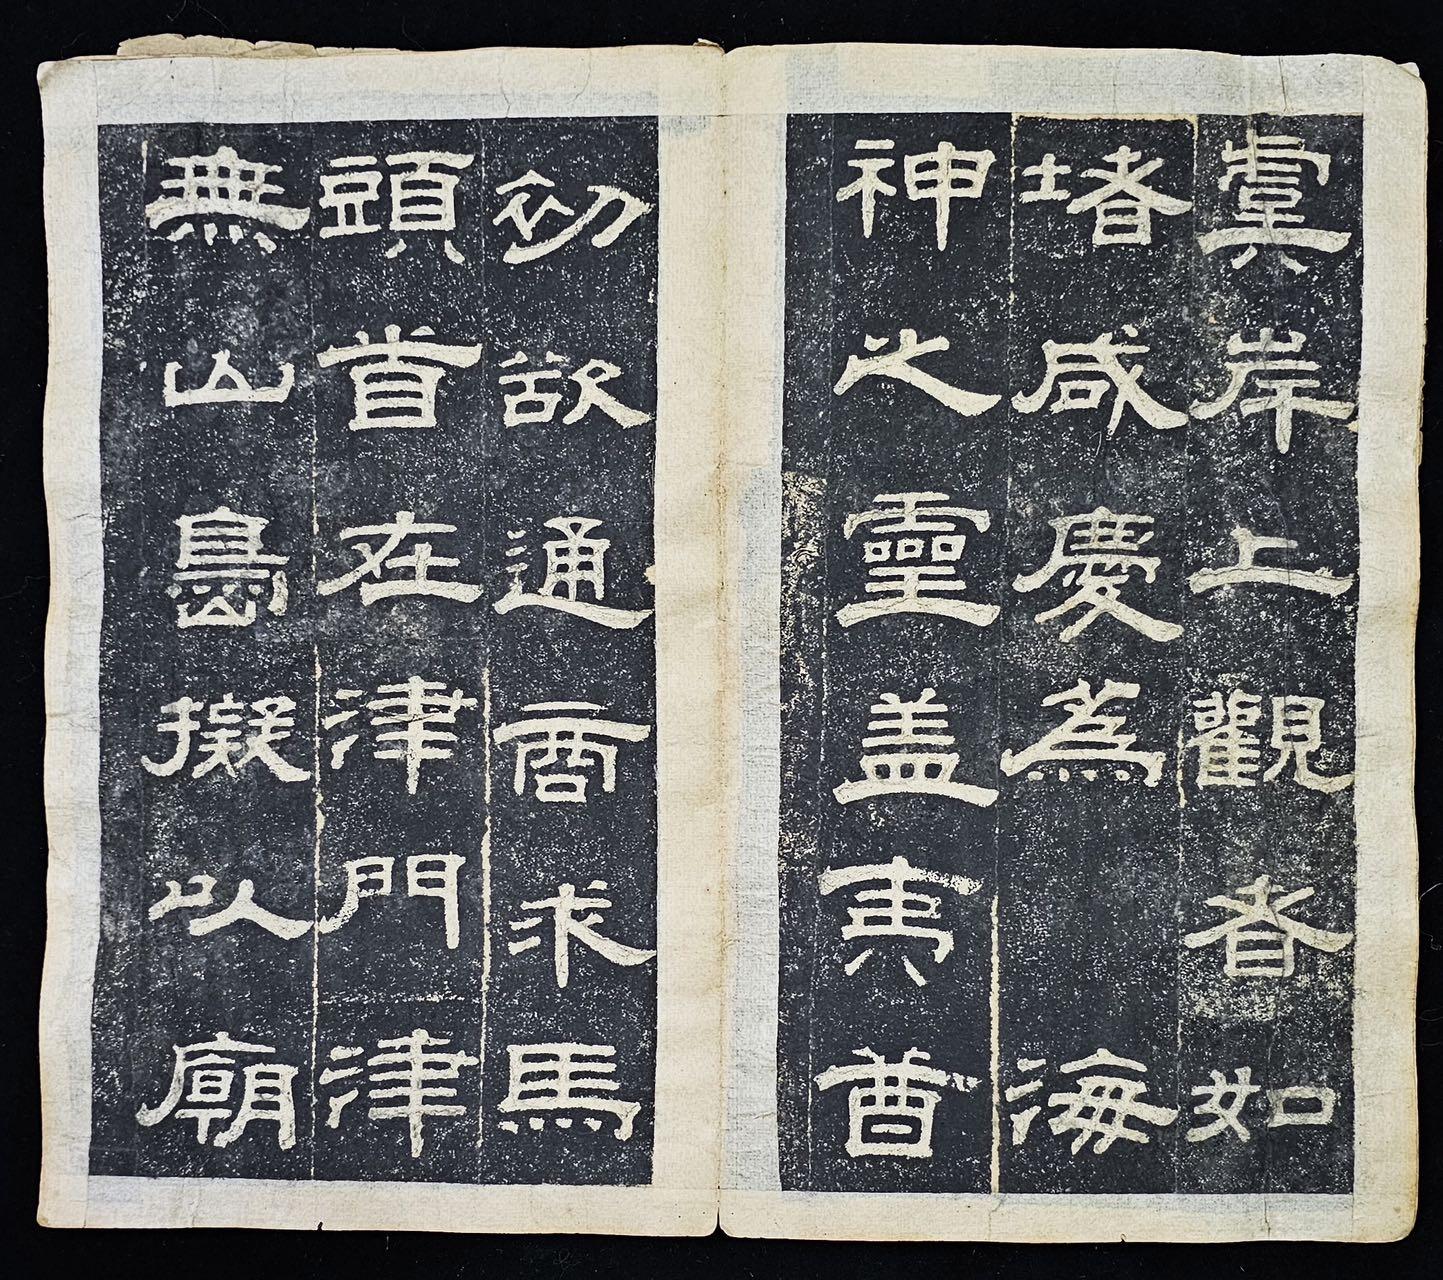 冀岸上觀者如
堵咸慶為海
神之靈盖夷酋
初欲通商求馬
頭首在津門津
無山島擬以廟